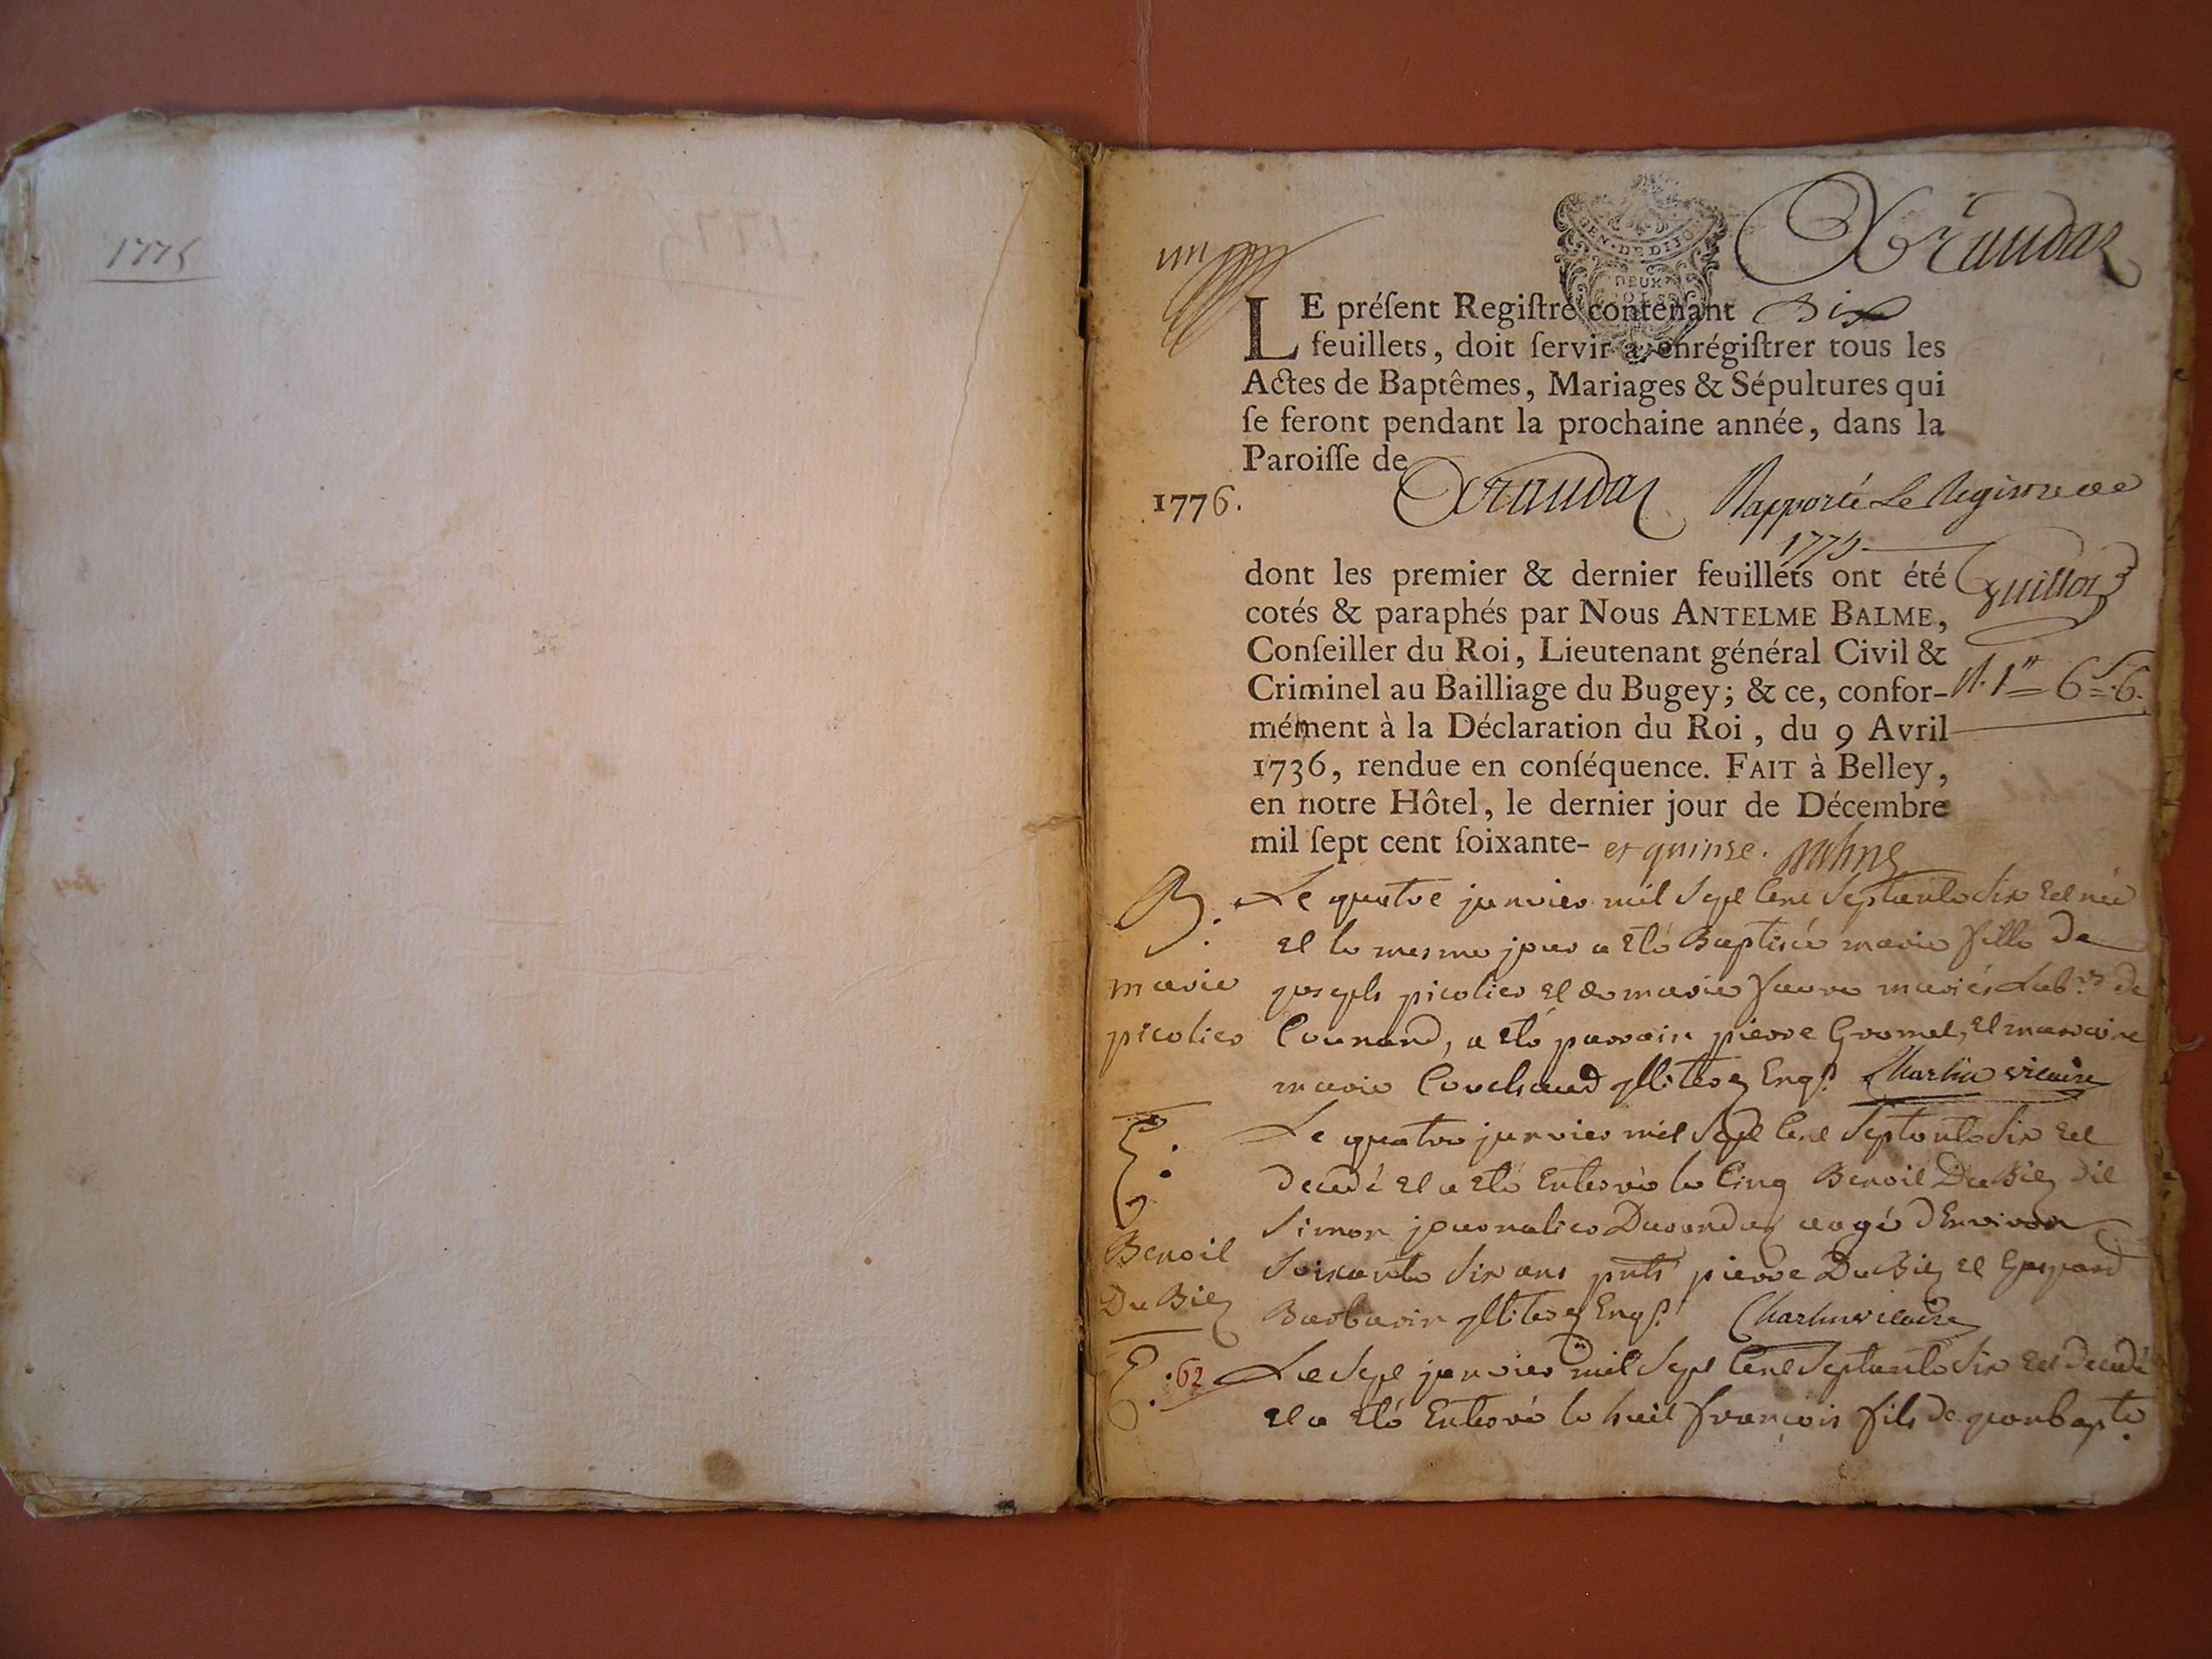 1775
un
GEN · DE DIJON
DEUX SOLS
Arandaz
LE préſent Regiſtre contenant Dix
feuillets, doit ſervir à enrégiſtrer tous les
Actes de Baptêmes, Mariages & Sépultures qui
ſe feront pendant la prochaine année, dans la
Paroiſſe de
1776. Arandaz Rapporté Le Registre de
1775
dont les premier & dernier feuillets ont été
Guillot
cotés & paraphés par Nous ANTELME BALME,
Conſeiller du Roi, Lieutenant général Civil &
Criminel au Bailliage du Bugey; & ce, confor-
mément à la Déclaration du Roi, du 9 Avril
1736, rendue en conſéquence. FAIT à Belley,
en notre Hôtel, le dernier jour de Décembre
mil ſept cent ſoixante- et quinse.
B. Le quatre janvier mil Sept Cent Septante Six Est née
et le mesme jour a eté Baptisée marie fille De
marie joseph picolier et de marie favre mariés Labrs de
picolier Counand, a eté parrain pierre Gromel, et marraine
marie Couchaud illiteres Enqs. Charlin vicaire
E. Le quatre janvier mil Sept Cent Septante Six Est
decedé et a eté Enterré le Cinq Benoit DuBiez dit
Simon journalier Darandaz aagé d'Environ
Benoit Soixante Six ans pnts pierre DuBiez et Gaspard
DuBiez Barbarin illiteres Enqs. Charlin vicaire
E. 62 Le Sept janvier mil Sept Cent Septante Six Est decedé
et a eté Enterré le huit françois fils de jeanbapte.